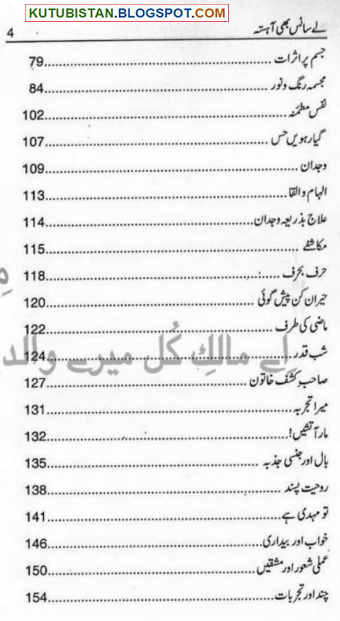 KUTUBISTAN.BLOGSPOT.COM
لے سانس بھی آہستہ 4
جسم پر اثرات 79
مجسمہ رنگ و نور 84
نفس مطمئنہ 102
گیارہویں حس 107
وجدان 109
الہام و القا 113
علاج بذریعہ وجدان 114
مکاشفے 115
حرف بحرف 118
حیران کن پیش گوئی 120
ماضی کی طرف 122
اے مالکِ کُل میرے والد
شب قدر 124
صاحب کشف خاتون 127
میرا تجربہ 131
مار آتشیں! 132
بال اور جنسی جذبہ 135
روحیت پسند 138
تو مہدی ہے 141
خواب اور بیداری 146
عملی شعور اور مشقیں 150
چند اور تجربات 154